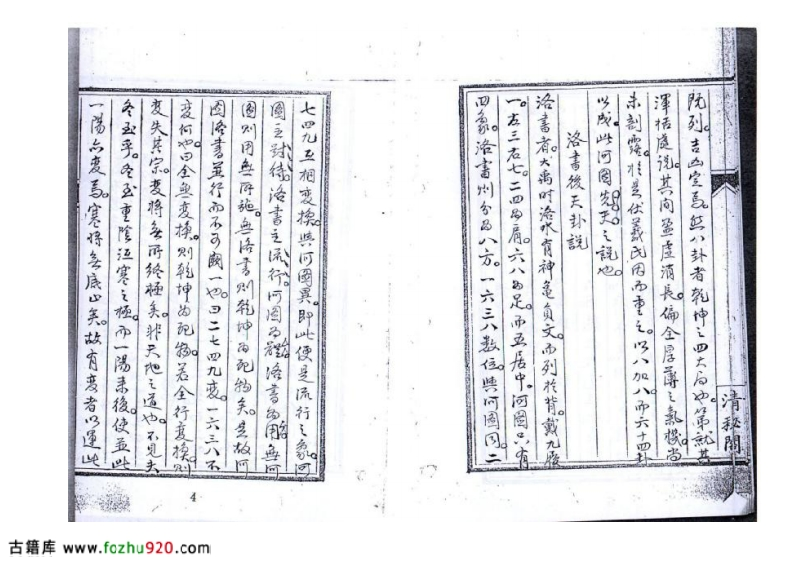 既列。吉凶定焉。然八卦者乾坤之四大局也。第就其
渾括處說。其間盈虛消長。偏全厚薄之氣機。尚
未剖露。於是伏羲氏因而重之。以八加八。而六十四卦
以成。此河圖先天之說也。
洛書後天卦說
洛書者。大禹時洛水有神龜負文而列於背。戴九履
一。左三右七。二四為肩。六八為足。而五居中。河圖只有
四象。洛書則分為八方。一六三八數位。與河圖同。二
七四九互相變換。與河圖異。即此便是流行之象。河
圖主對待。洛書主流行。河圖為體。洛書為用。無河
圖則用無所施。無洛書則乾坤為死物矣。是故河
圖洛書並行而不可闕一也。四二七四九變。一六三八不
變何也。曰全無變換。則乾坤為死物。若全行變換。則
變失其宗。變將無所終極矣。非天地之道也。不見夫
冬至乎。冬至重陰沍寒之極。而一陽來復。使並此
一陽亦變焉。寒將無底止矣。故有變者以運此
清秘閣
4
古籍库 www.fozhu920.com